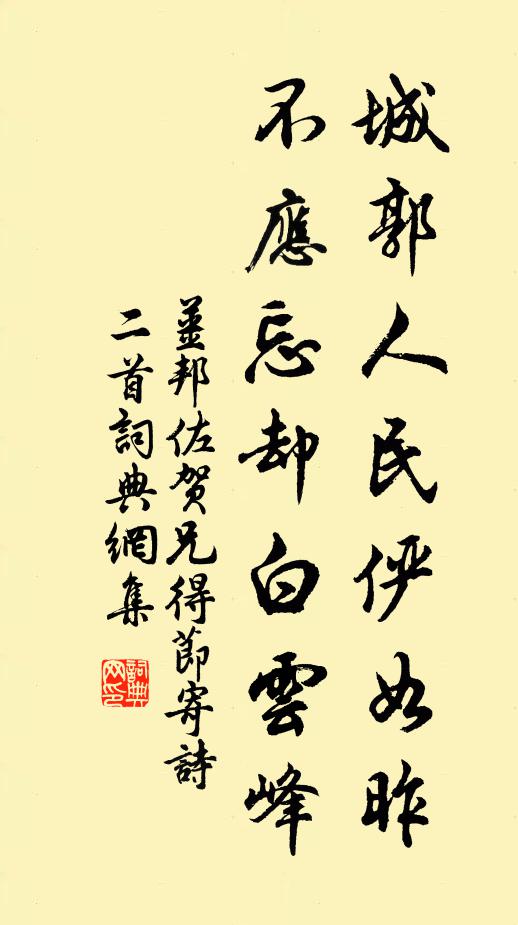 城郭人民俨如昨
不應忘却白雲峰
薑邦佐賀兄得節寄詩
二首詞典網集
詞典网印